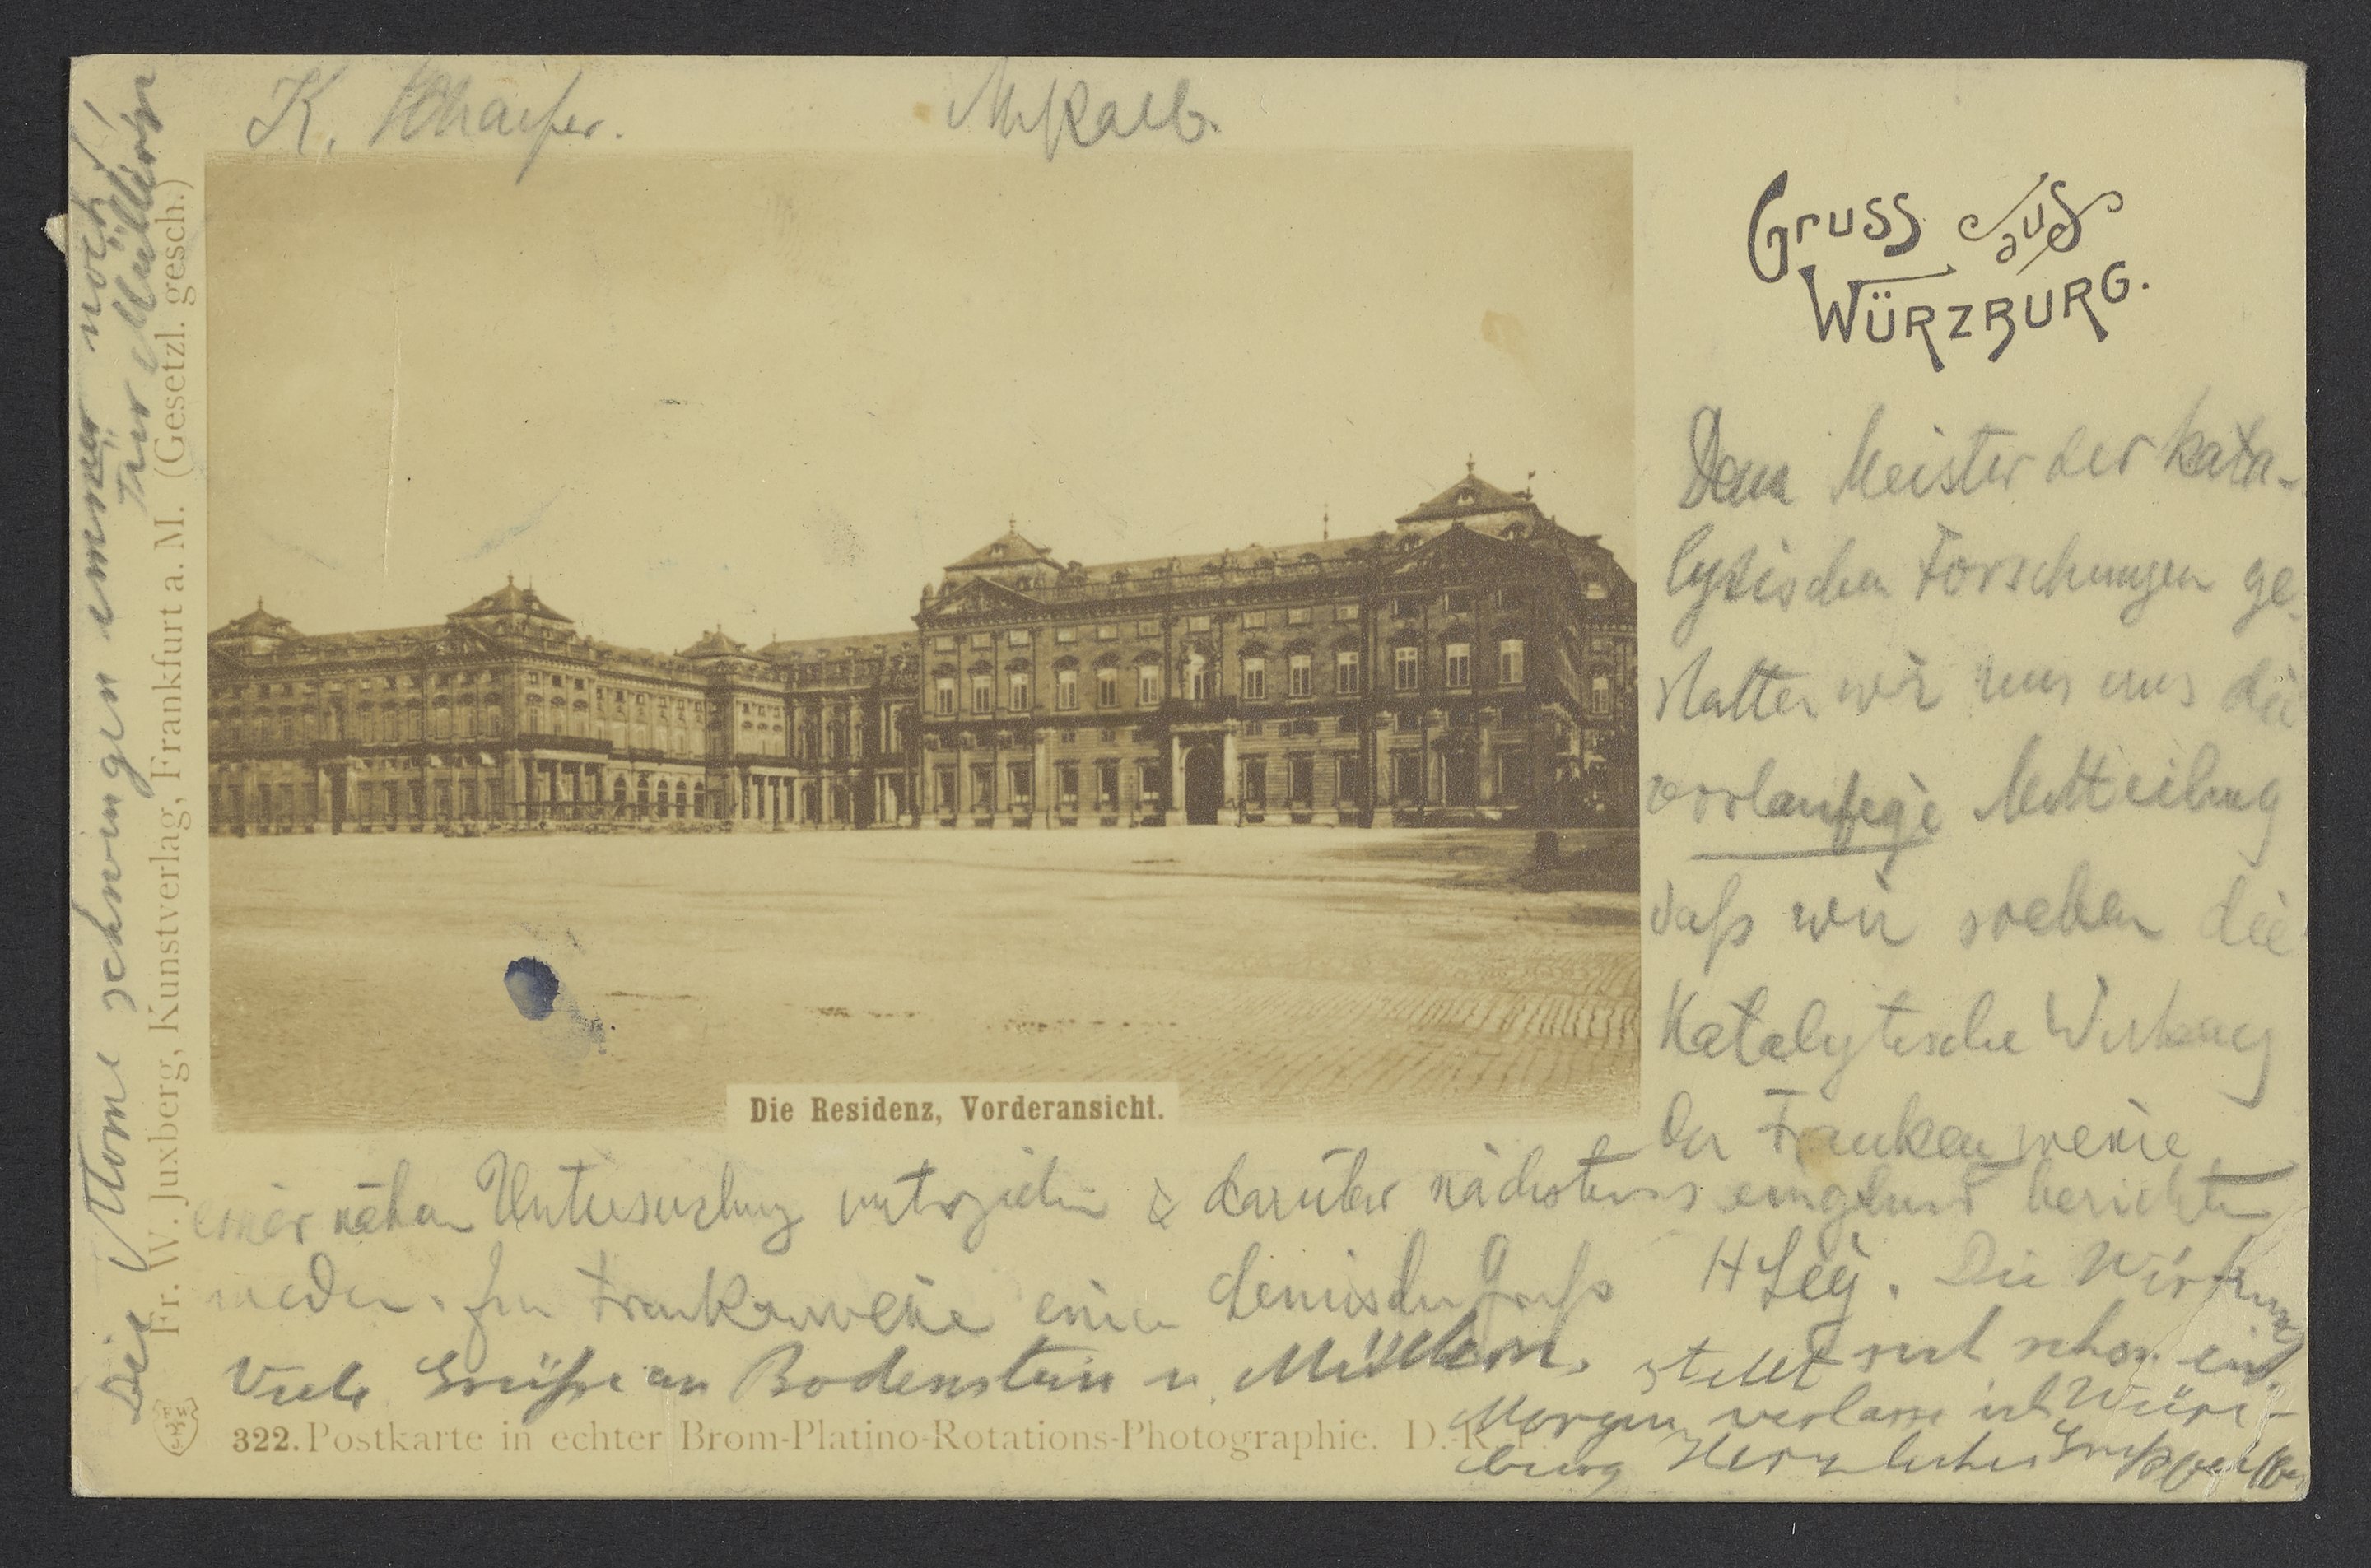 K. Schaefer.
MKalb.
Gruss aus
WÜRZBURG.
Dem Meister der kata-
lytischen Forschungen ge-
statten wir uns uns die
vorlaufige Mitteilung
daß wir soeben die
Katalytische Wirkung
der Frankenweine
einer nähern Untersuchung unterziehen & darüber nächstens eingehend berichten
werden. Im Frankenweine einen chemischen Gruß H Ley. Die Wirkung
Viele Grüße an Bodenstein u. Müller. stellt sich schon ein.
Morgen verlasse ich Würz-
burg Herzlichen Gruß
Die Atome schwingen immer noch!
Ihr Müller
Die Residenz, Vorderansicht.
Fr. W. Juxberg, Kunstverlag, Frankfurt a. M. (Gesetzl. gesch.)
322. Postkarte in echter Brom-Platino-Rotations-Photographie. D.-R.-P.